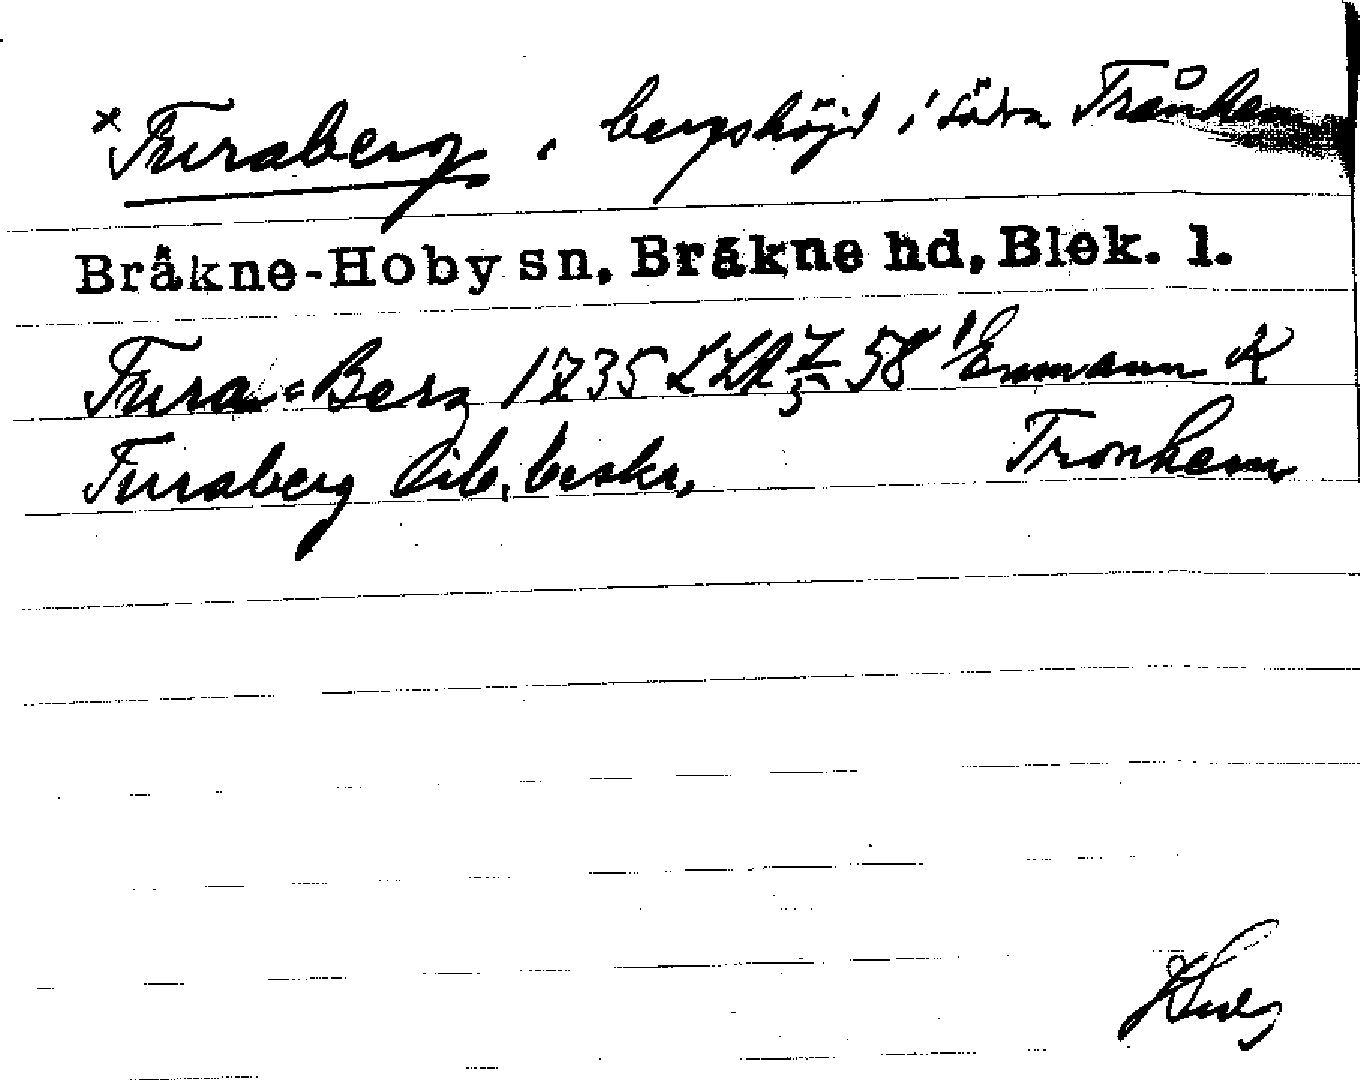 × Furaberg, bergshöjd i södra Trånhem
Bräkne-Hoby sn, Bräkne hd, Blek. l.
Fura=Berg 1735 LSA Z/5 58 Enmann K
Furaberg Dib. beskr. Tronhem